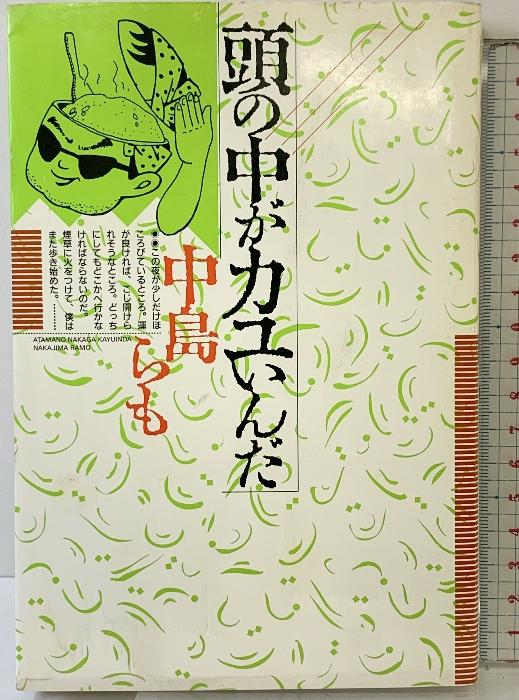 頭の中がカユいんだ
中島らも
●●この夜が少しだけほ
ころびているところ。運
が良ければ、こじ開けら
れそうなところ。どっち
にしてもどこかへ行かな
ければならないのだ。
煙草に火をつけて、僕は
また歩き始めた。………
ATAMANO NAKAGA KAYUINDA
NAKAJIMA RAMO